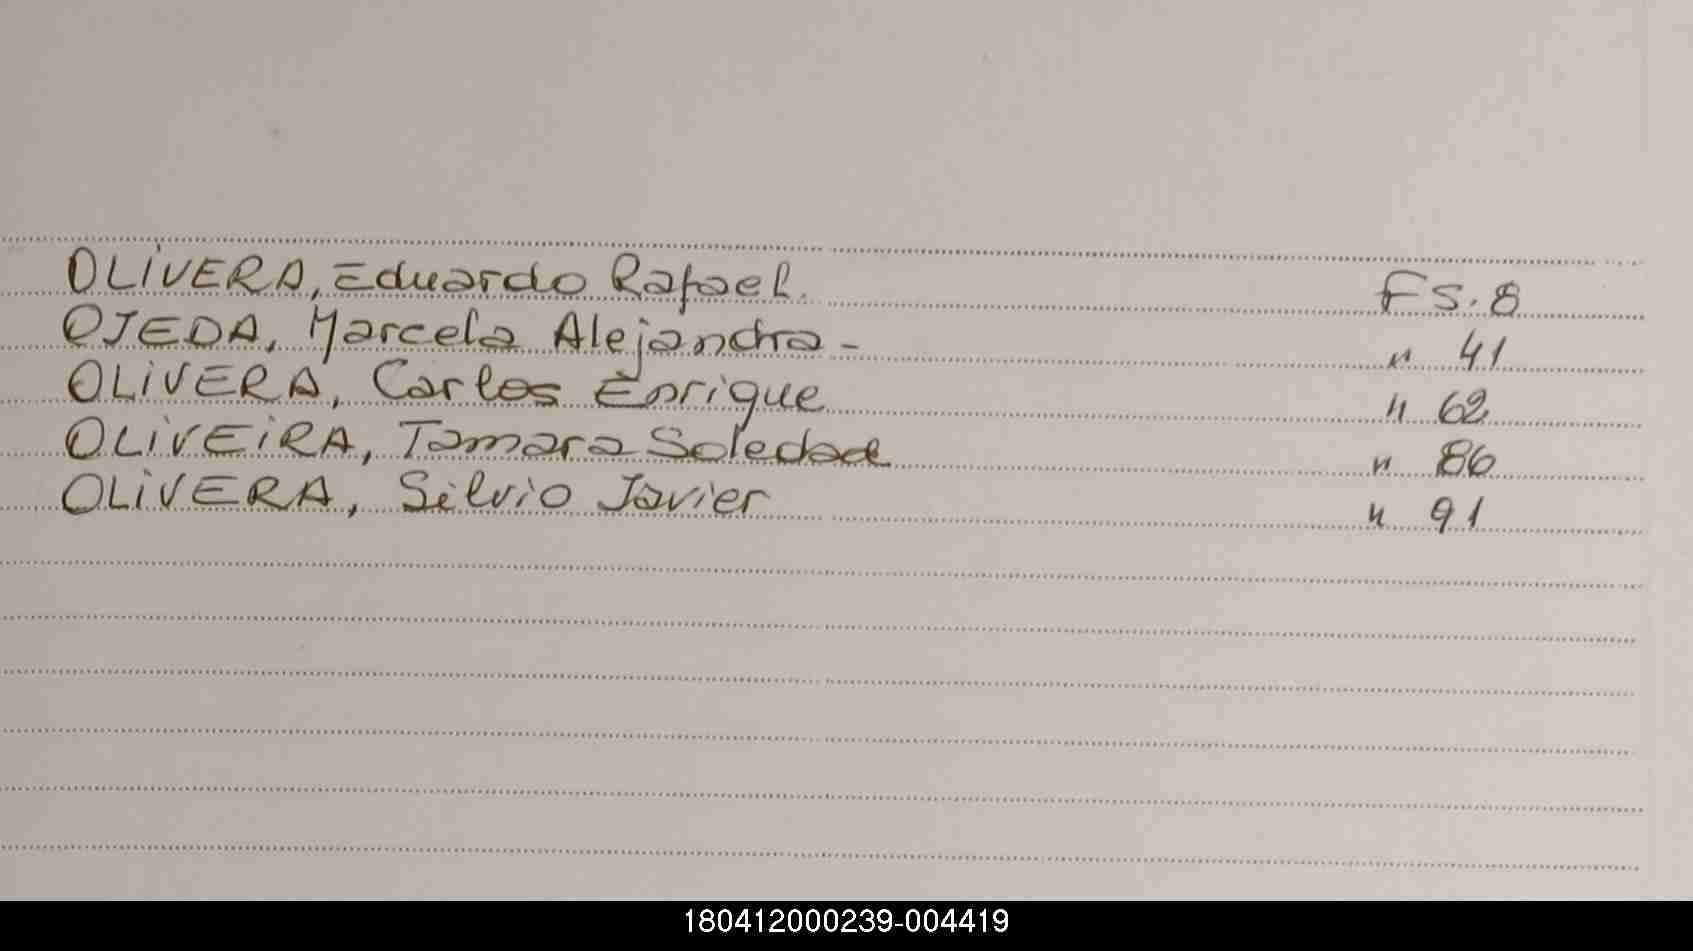 OLIVERA, Eduardo Rafael. Fs. 8
OJEDA, Marcela Alejandra - " 41
OLIVERA, Carlos Enrique " 62
OLIVEIRA, Tamara Soledad " 86
OLIVERA, Silvio Javier " 91
180412000239-004419